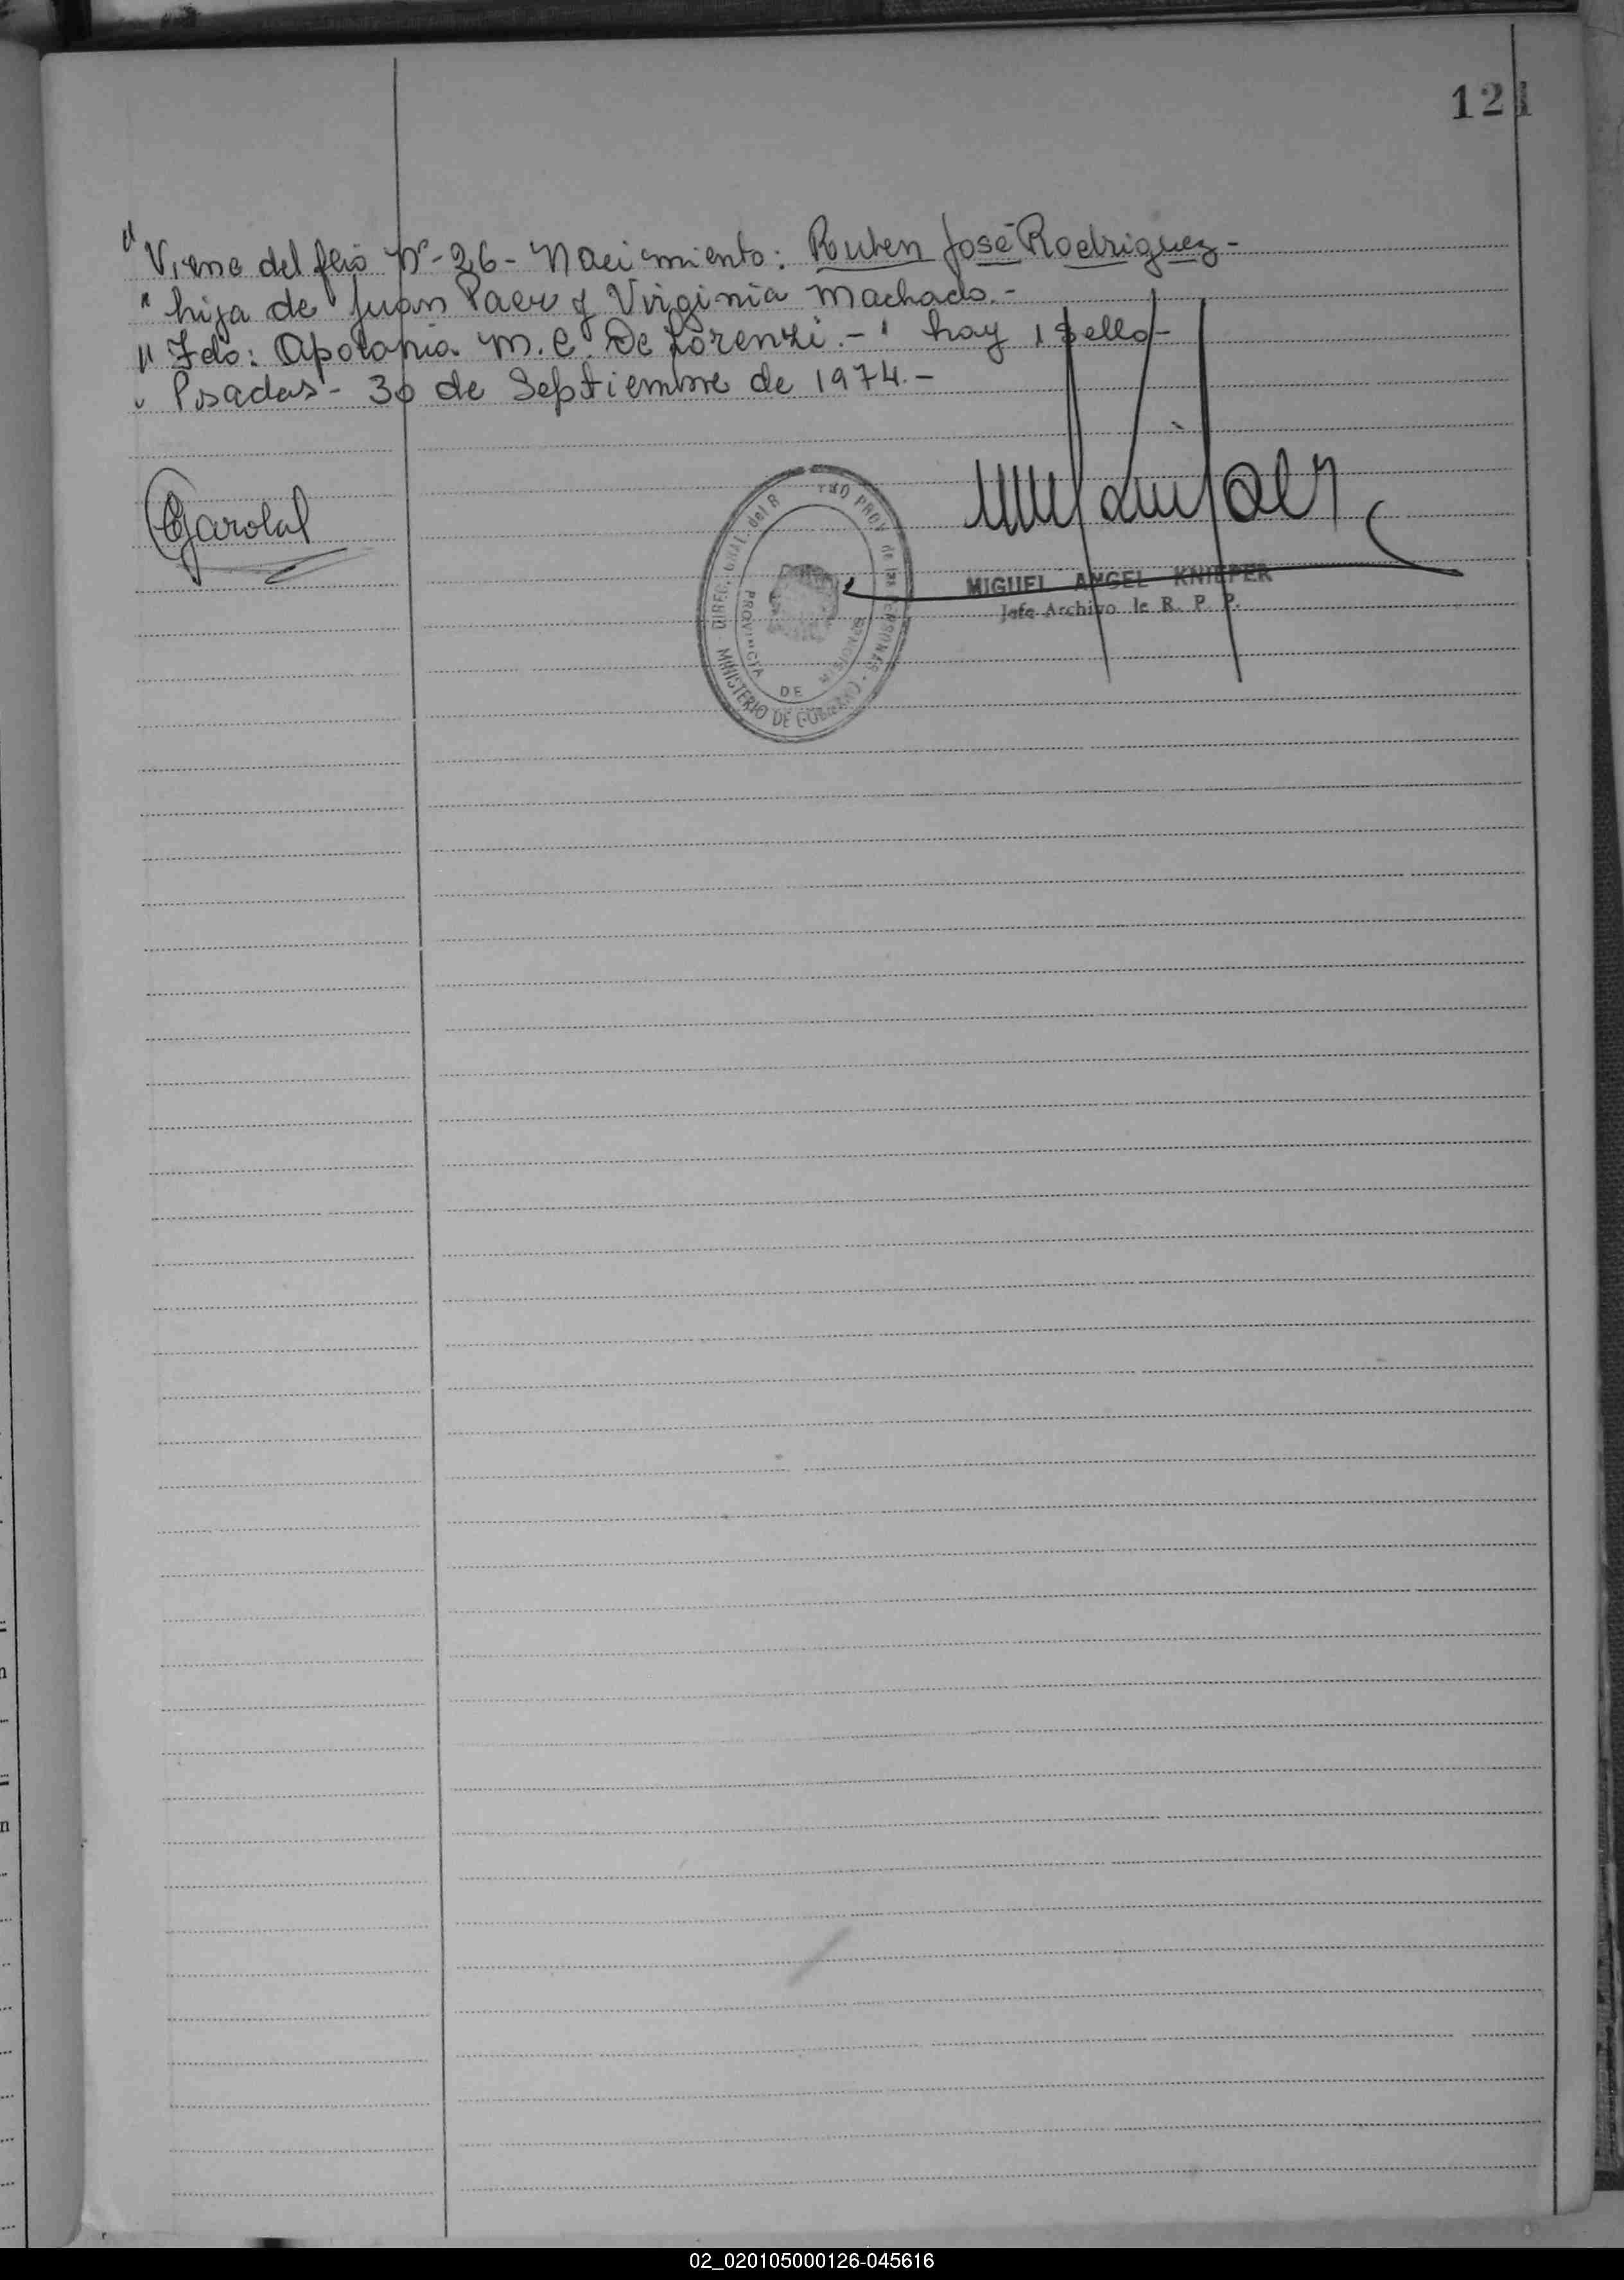 121
" Viene del flio Nº-26- Nacimiento: Ruben José Rodriguez-
" hija de Juan Paer y Virginia Machado.-
" Fdo: Apolonia M. C. De Lorenzi.- " hay 1 sello-
" Posadas- 30 de Septiembre de 1974.-
MIGUEL ANGEL KNIEPER
Jefe Archivo de R. P. P.
DIREC. GRAL. del R TRO PROV de las PERSONAS
MINISTERIO DE GOBIERNO
PROVINCIA DE MISIONES
02_020105000126-045616